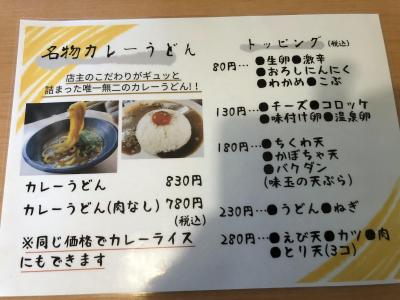 名物カレーうどん
店主のこだわりがギュッと
詰まった唯一無二のカレーうどん!!
カレーうどん 830円
カレーうどん(肉なし) 780円
(税込)
※同じ価格でカレーライス
にもできます
トッピング(税込)
80円…●生卵●激辛
●おろしにんにく
●わかめ●こぶ
130円…●チーズ●コロッケ
●味付け卵●温泉卵
180円…●ちくわ天
●かぼちゃ天
●バクダン
(味玉の天ぷら)
230円…●うどん●ねぎ
280円…●えび天●カツ●肉
●とり天(3コ)